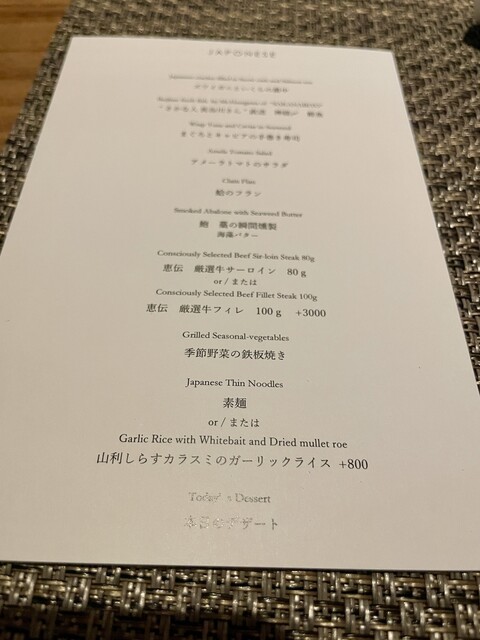 まぐろとキャビアの手巻き寿司
Amela Tomato Salad
アメーラトマトのサラダ
Clam Flan
蛤のフラン
Smoked Abalone with Seaweed Butter
鮑 藁の瞬間燻製
海藻バター
Consciously Selected Beef Sir-loin Steak 80g
恵伝 厳選牛サーロイン 80 g
or / または
Consciously Selected Beef Fillet Steak 100g
恵伝 厳選牛フィレ 100 g +3000
Grilled Seasonal-vegetables
季節野菜の鉄板焼き
Japanese Thin Noodles
素麺
or / または
Garlic Rice with Whitebait and Dried mullet roe
山利しらすカラスミのガーリックライス +800
Today's Dessert
本日のデザート